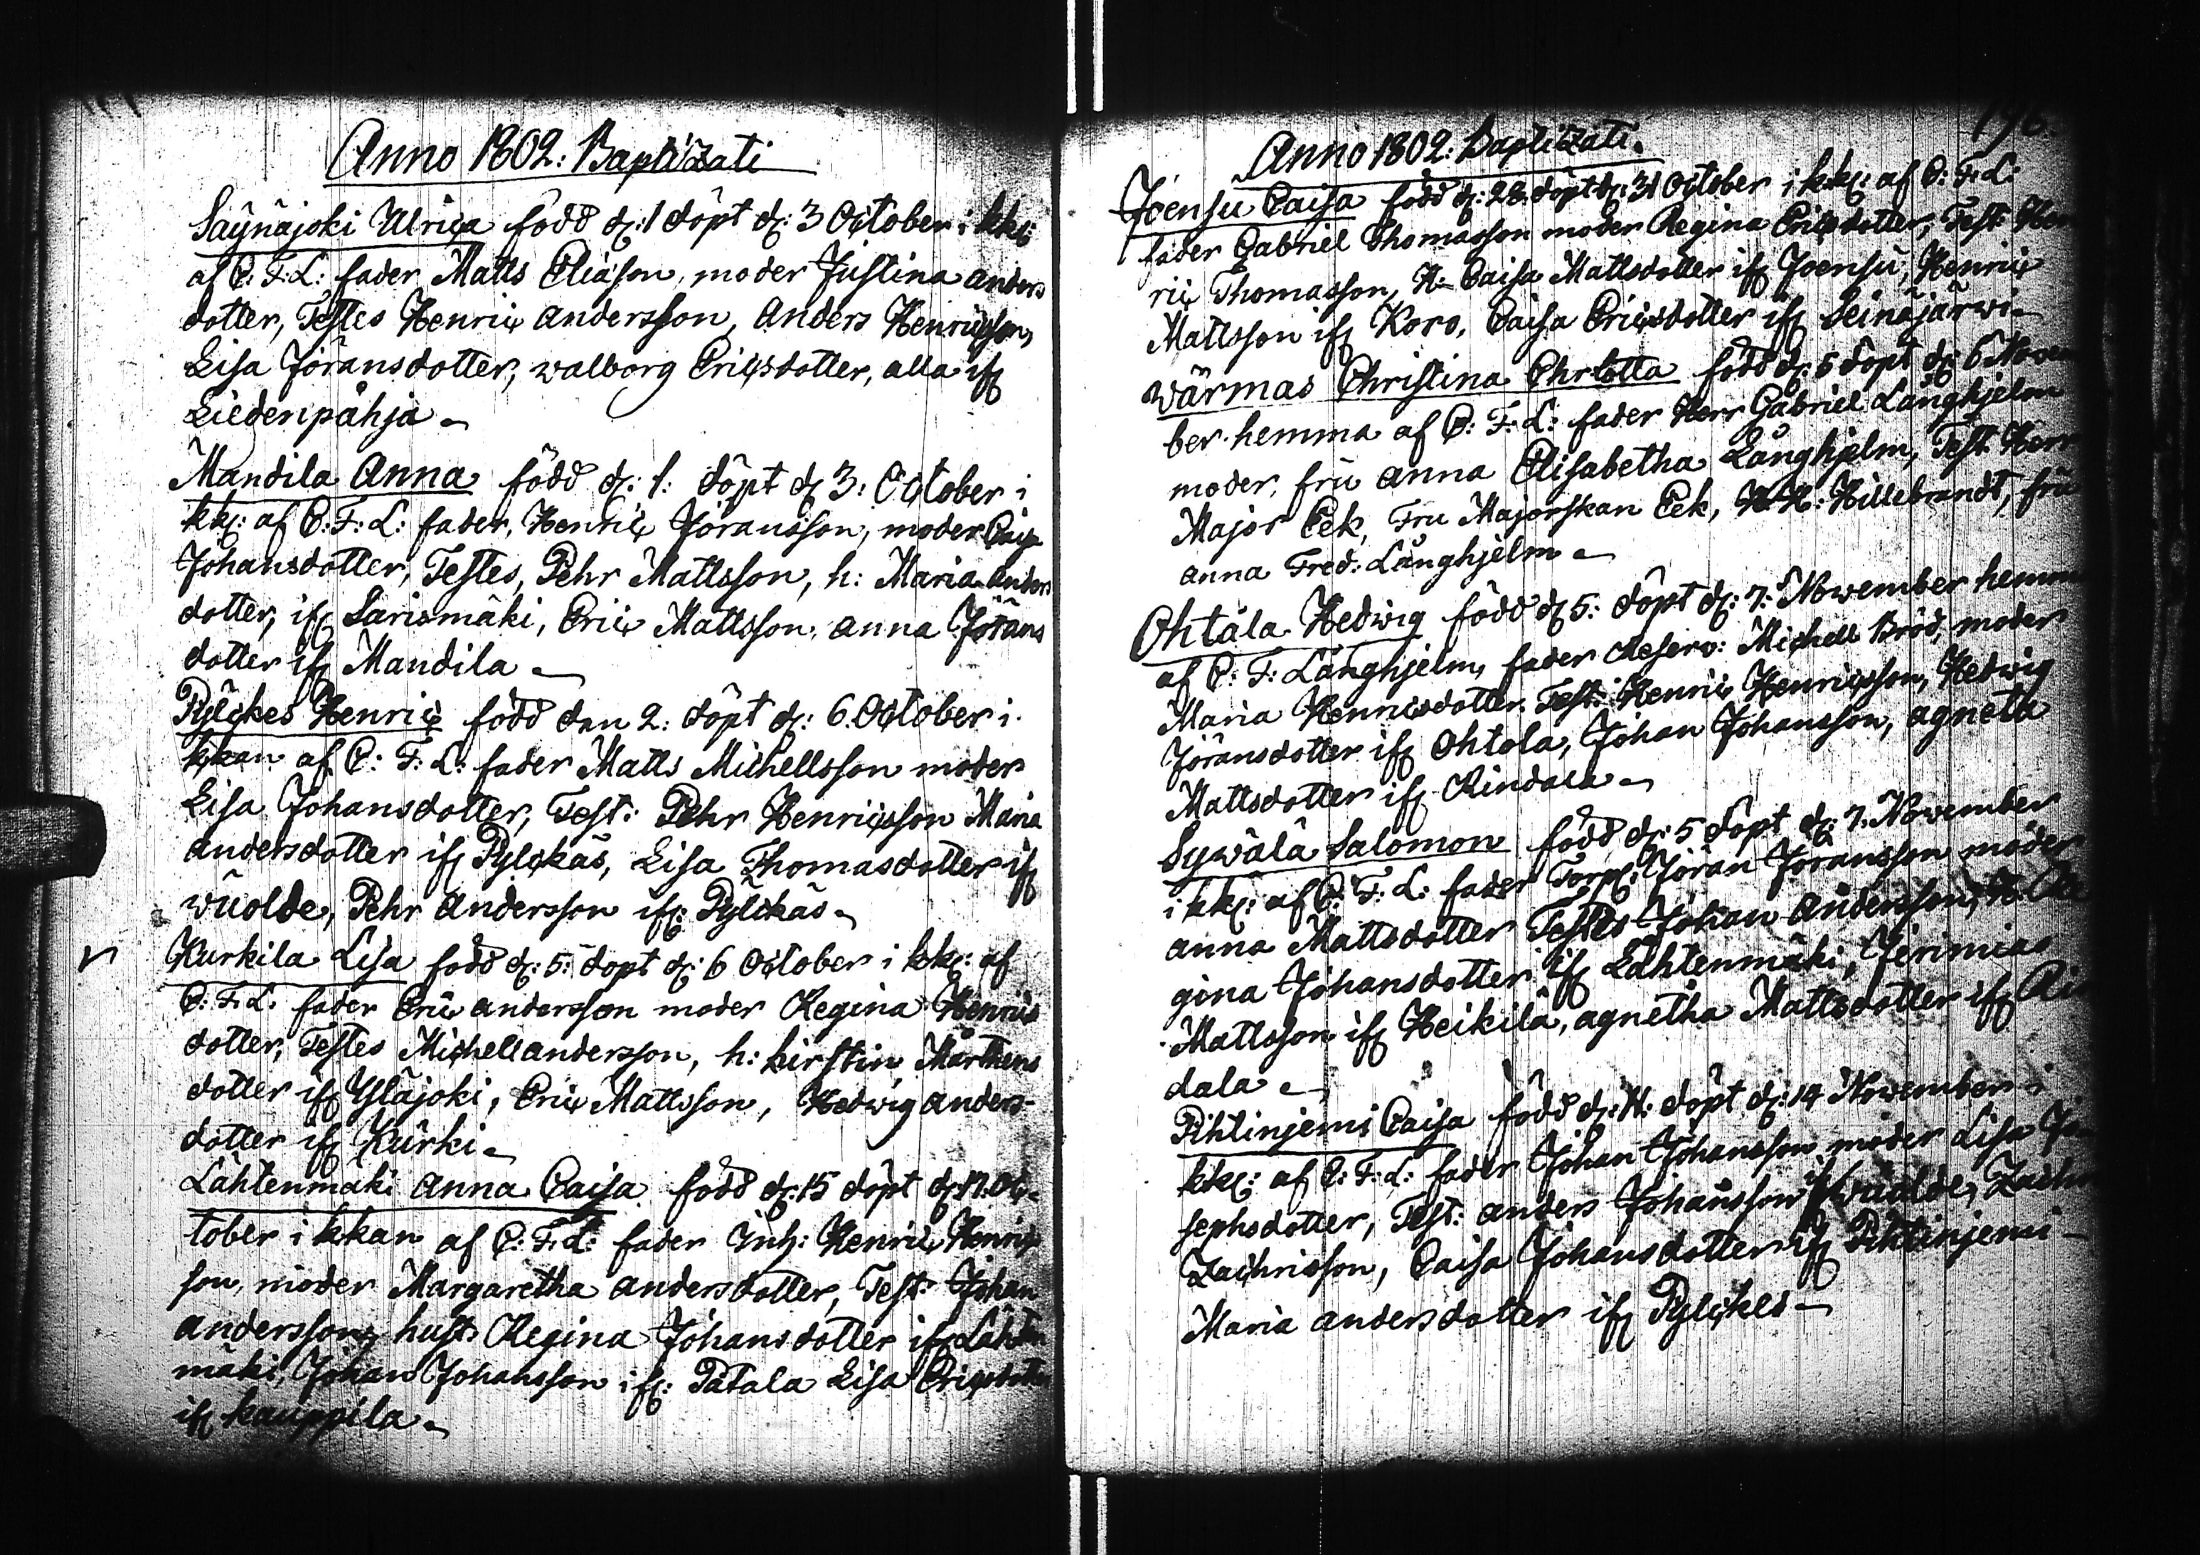 Anno 1802: Baptizati
Saÿnäjoki Ulrica född d: 1 döpt d: 3 October i kk:
af C: F: L: fader Matts Eliason, moder Justina anders
dotter, Testes Henric andersson, Anders Henricsson,
Lisa Jöransdotter, walborg Ericsdotter, alla ifr
Liedenpåhja
Mandila Anna född d: 1: döpt d 3: October i
kk: af C: F: L: fader, Henric Jöransson, moder Caisa
Johansdotter, Testes, Pehr Mattsson, h: Maria anders
dotter, ifr Sarismäki, Eric Mattsson, anna Jörans
dotter ifr Mandila
Pylckes Henric född den 2: döpt d: 6. October i
kkan af C: F: L: fader Matts Michellsson moder
Lisa Johansdotter, Test: Pehr Henricsson Maria
andersdotter ifr Pylckäs, Lisa Thomasdotter ifr
wuolde, Pehr Andersson ifr: Pylckäs
Kurkila Lisa född d: 5: döpt d: 6 October i kk: af
C: F: L. fader Eric andersson moder Regina Henrics
dotter, Testes Michell andersson, h: kirstin Mårthens
dotter ifr Yläjoki, Eric Mattsson, Hedwig anders-
dotter ifr Kurki
Lahtenmäki Anna Caisa född d: 15 döpt d: 17. Oc-
tober i kkan af C: F: L: fader Inh: Henric Henrics
son, moder Margaretha andersdotter, Test: Johan
andersson, hust: Regina Johansdotter ifr Lahten
mäki, Johan Johansson ifr: Patala Lisa Ericsdotter
ifr kauppila
196.
Anno 1802: Baptizati.
Joensu Caisa född d: 28. döpt d: 31 October i kk: af C: F: L:
fader Gabriel Thomasson moder Regina Ericsdotter, Test: Hen
ric Thomasson, H: Caisa Mattsdotter ifr Joensu, Henric
Mattsson ifr Koro, Caisa Ericsdotter ifr Seinäjärwi
Wärmas Christina Chrlotta född d: 5 döpt d: 6 Novem
ber hemma af C: F: L: fader Herr Gabriel Långhjelm
moder, fru anna Elisabetha Långhjelm, Test: Herr
Major Eek, Fru Majorskan Eek, H: H: Hillebrandt, fru
anna Fred: Långhjelm
Ohtala Hedwig född d 5: döpt d: 7: November hemma
af C: F: Långhjelm, fader Reserv: Michell Bröd, moder
Maria Henricsdotter, Test: Henric Henricsson, Hedwig
Jöransdotter ifr Ohtola, Johan Johansson, agneta
Mattsdotter ifr Rindala
Sywälä Salomon född d: 5 döpt d: 7. November
i kk: af C: F: L: fader Torp: Jöran Jöransson moder
anna Mattsdotter Testes Johan andersson, H: Re
gina Johansdotter ifr Lahtenmäki, Jerimias
Mattsson ifr Heikilä, agnetha Mattsdotter ifr Rin
dala
Pihlinjemi Caisa född d: 11: döpt d: 14 November i
kk: af C: F: L: fader Johan Johansson moder Lisa Jo
sephsdotter, Test: anders Johansson ifr wuolde, Zachris
Zachrisson, Caisa Johansdotter ifr Pihlinjemi
Maria andersdotter ifr Pylckes